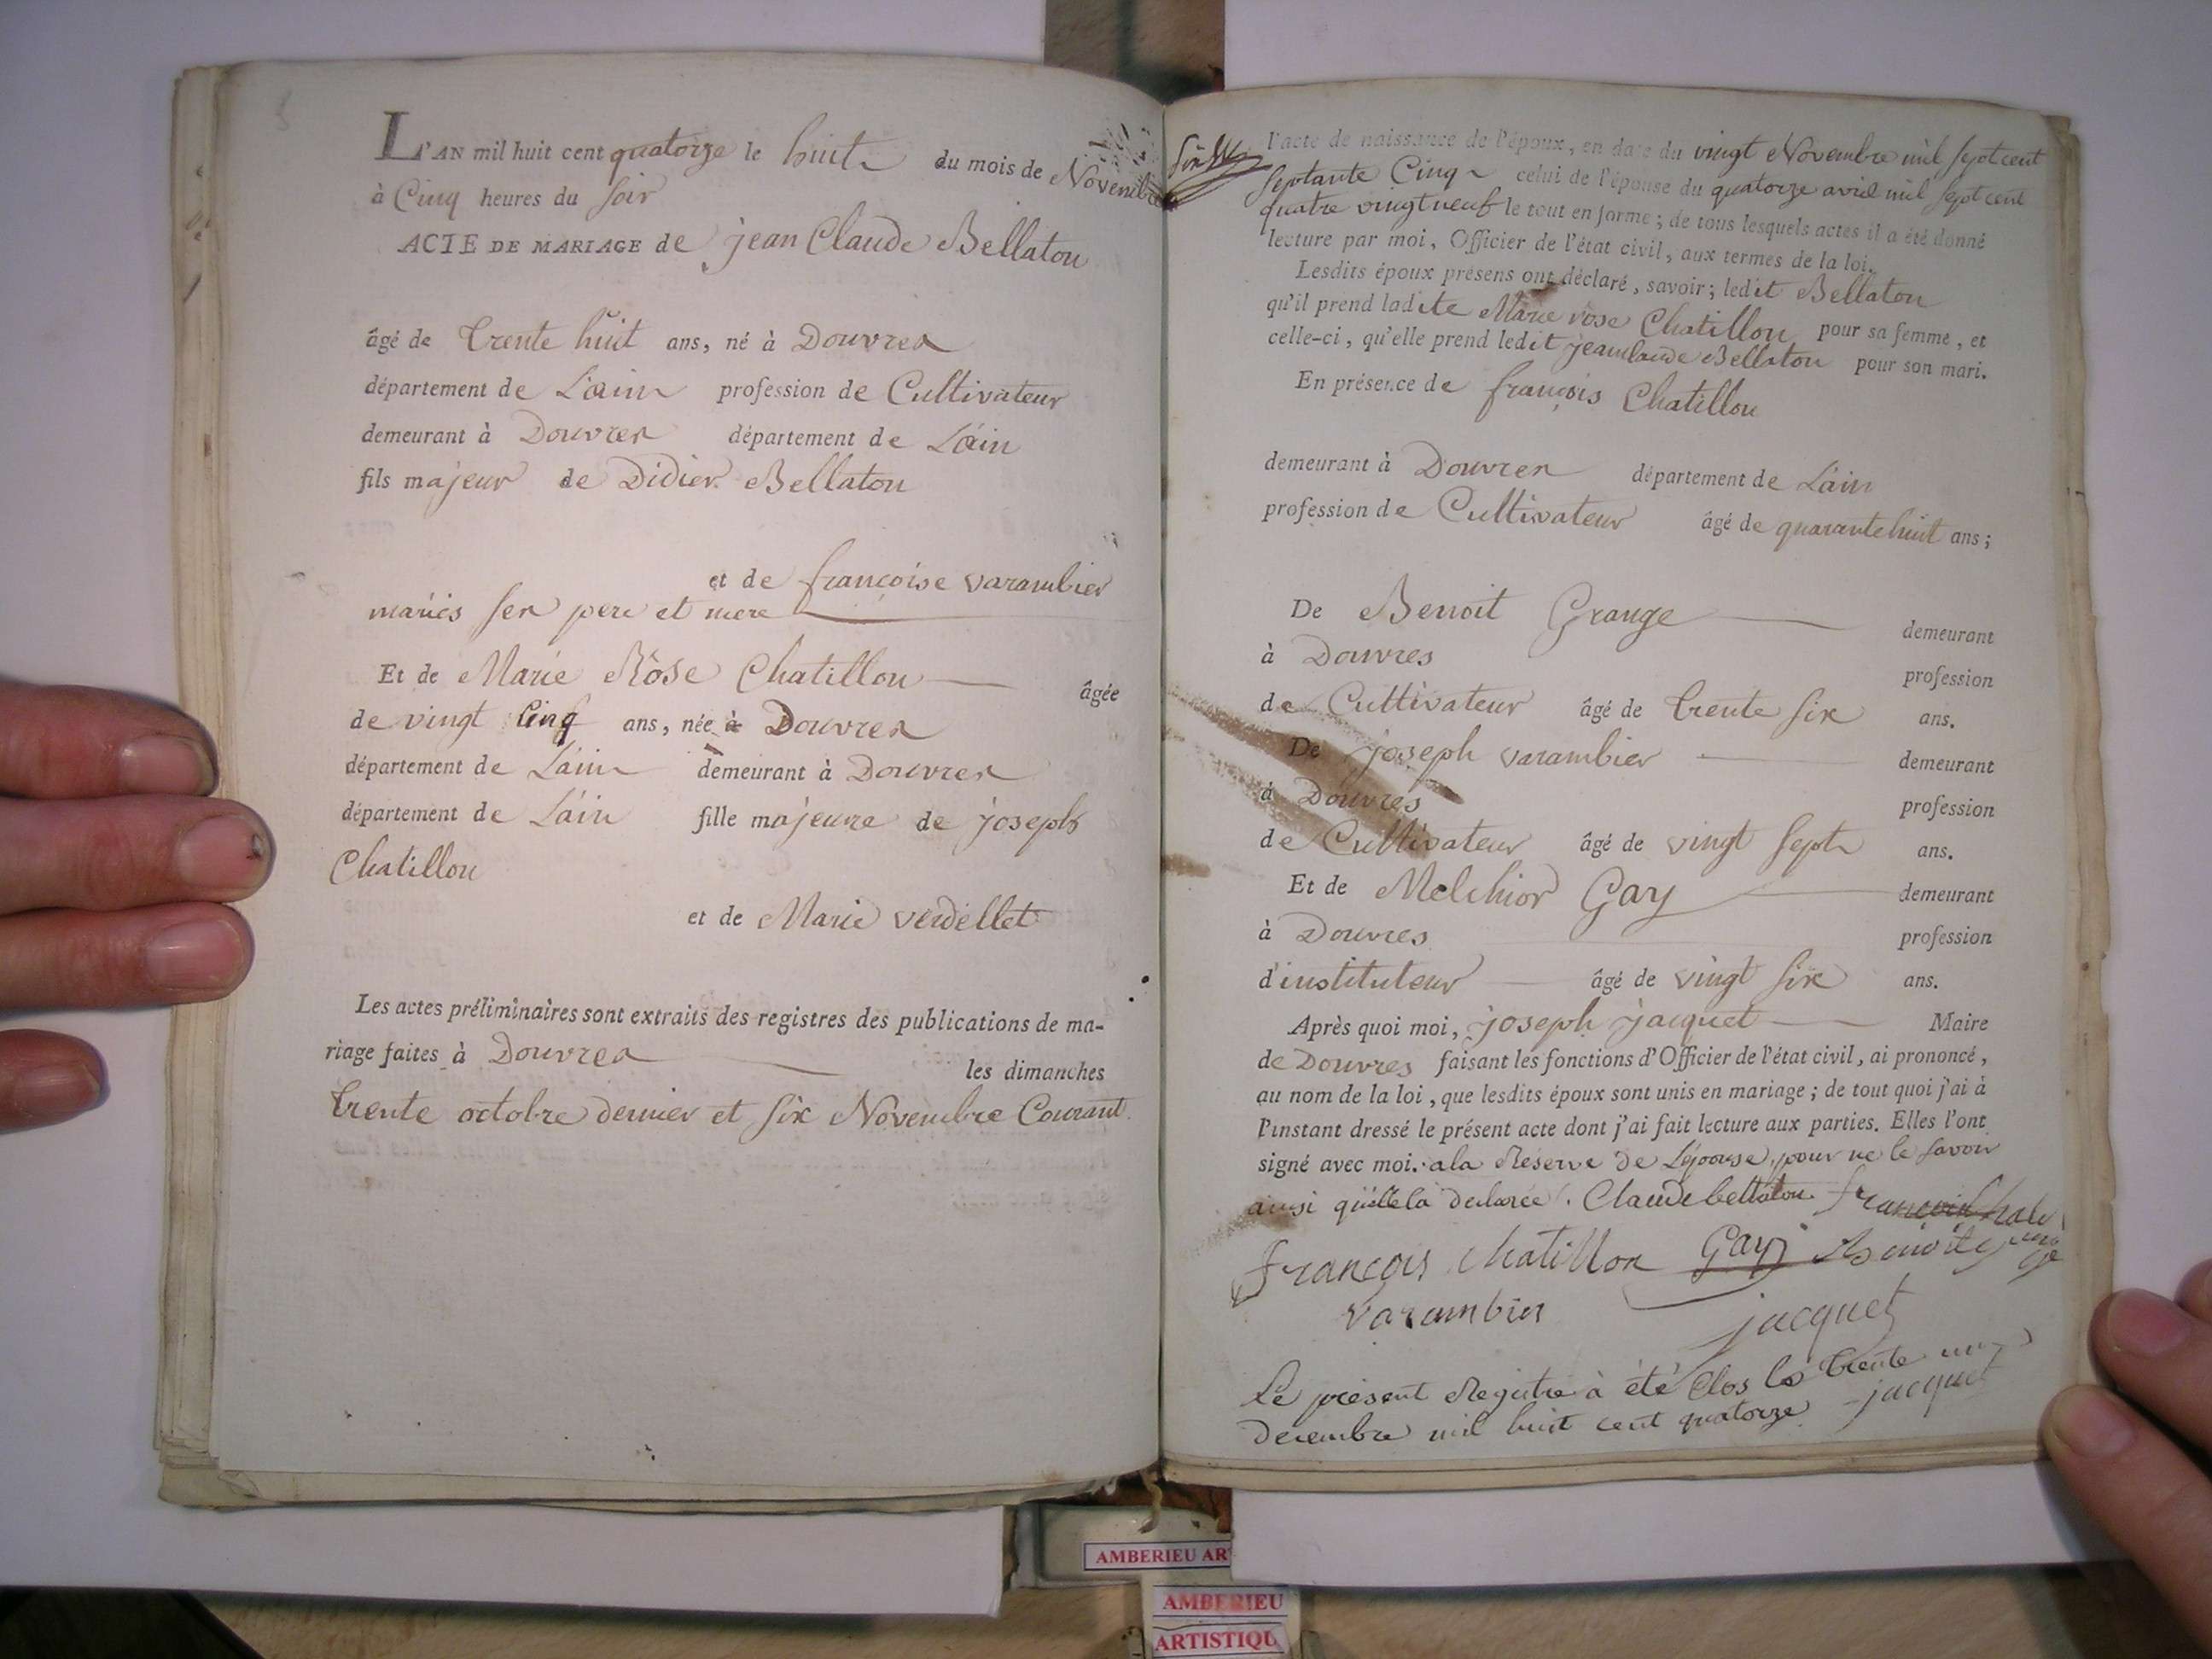 L'AN mil huit cent quatorze le huit du mois de Novembre
à Cinq heures du soir
ACTE DE MARIAGE de jean Claude Bellaton
âgé de trente huit ans, né à Douvres
département de L'ain profession de Cultivateur
demeurant à Douvres département de L'ain
fils majeur de Didier Bellaton
et de françoise varambier
mariés ses pere et mere
Et de Marie Rose Chatillon âgée
de vingt Cinq ans, née à Douvres
département de L'ain demeurant à Douvres
département de L'ain fille majeure de joseph
Chatillon
et de Marie verdellet
Les actes préliminaires sont extraits des registres des publications de ma-
riage faites à Douvres les dimanches
trente octobre dernier et six Novembre Courant
l'acte de naissance de l'époux, en date du vingt Novembre mil sept cent
septante Cinq celui de l'épouse du quatorze avril mil sept cent
quatre vingt neuf le tout en forme; de tous lesquels actes il a été donné
lecture par moi, Officier de l'état civil, aux termes de la loi.
Lesdits époux présens ont déclaré, savoir; ledit Bellaton
qu'il prend ladite Marie rose Chatillon pour sa femme, et
celle-ci, qu'elle prend ledit jean claude Bellaton pour son mari.
En présence de françois Chatillon
demeurant à Douvres département de L'ain
profession de Cultivateur âgé de quarante huit ans;
De Benoit Grange demeurant
à Douvres profession
de Cultivateur âgé de trente six ans.
De joseph varambier demeurant
à Douvres profession
de Cultivateur âgé de vingt sept ans.
Et de Melchior Gay demeurant
à Douvres profession
d'instituteur âgé de vingt six ans.
Après quoi moi, joseph jacquet Maire
de Douvres faisant les fonctions d'Officier de l'état civil, ai prononcé,
au nom de la loi, que lesdits époux sont unis en mariage; de tout quoi j'ai à
l'instant dressé le présent acte dont j'ai fait lecture aux parties. Elles l'ont
signé avec moi. a la Reserve de L'épouse, pour ne le savoir
ainsi qu'elle la declarée. Claude bellaton
françois chatillon Gay Benoit grange
varambier jacquet
Le présent Registre à été Clos le trente un
decembre mil huit cent quatorze jacquet
AMBERIEU AR
AMBERIEU
ARTISTIQU